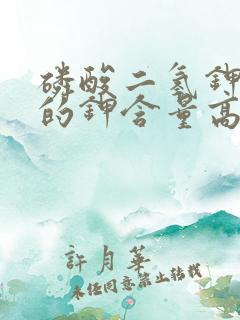 磷酸二氢钾
的钾含量高
許月華
未经同意禁止转载